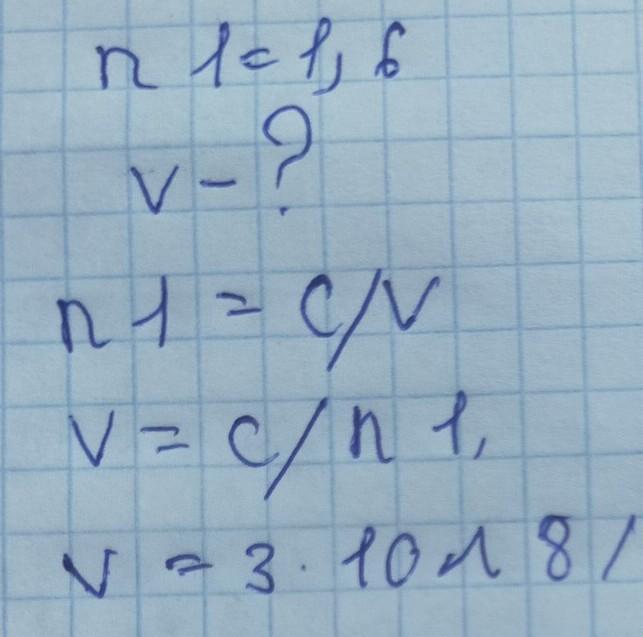 n 1 = 1,6
v - ?
n 1 = c/v
v = c/n 1,
v = 3 · 10 ^ 8 /